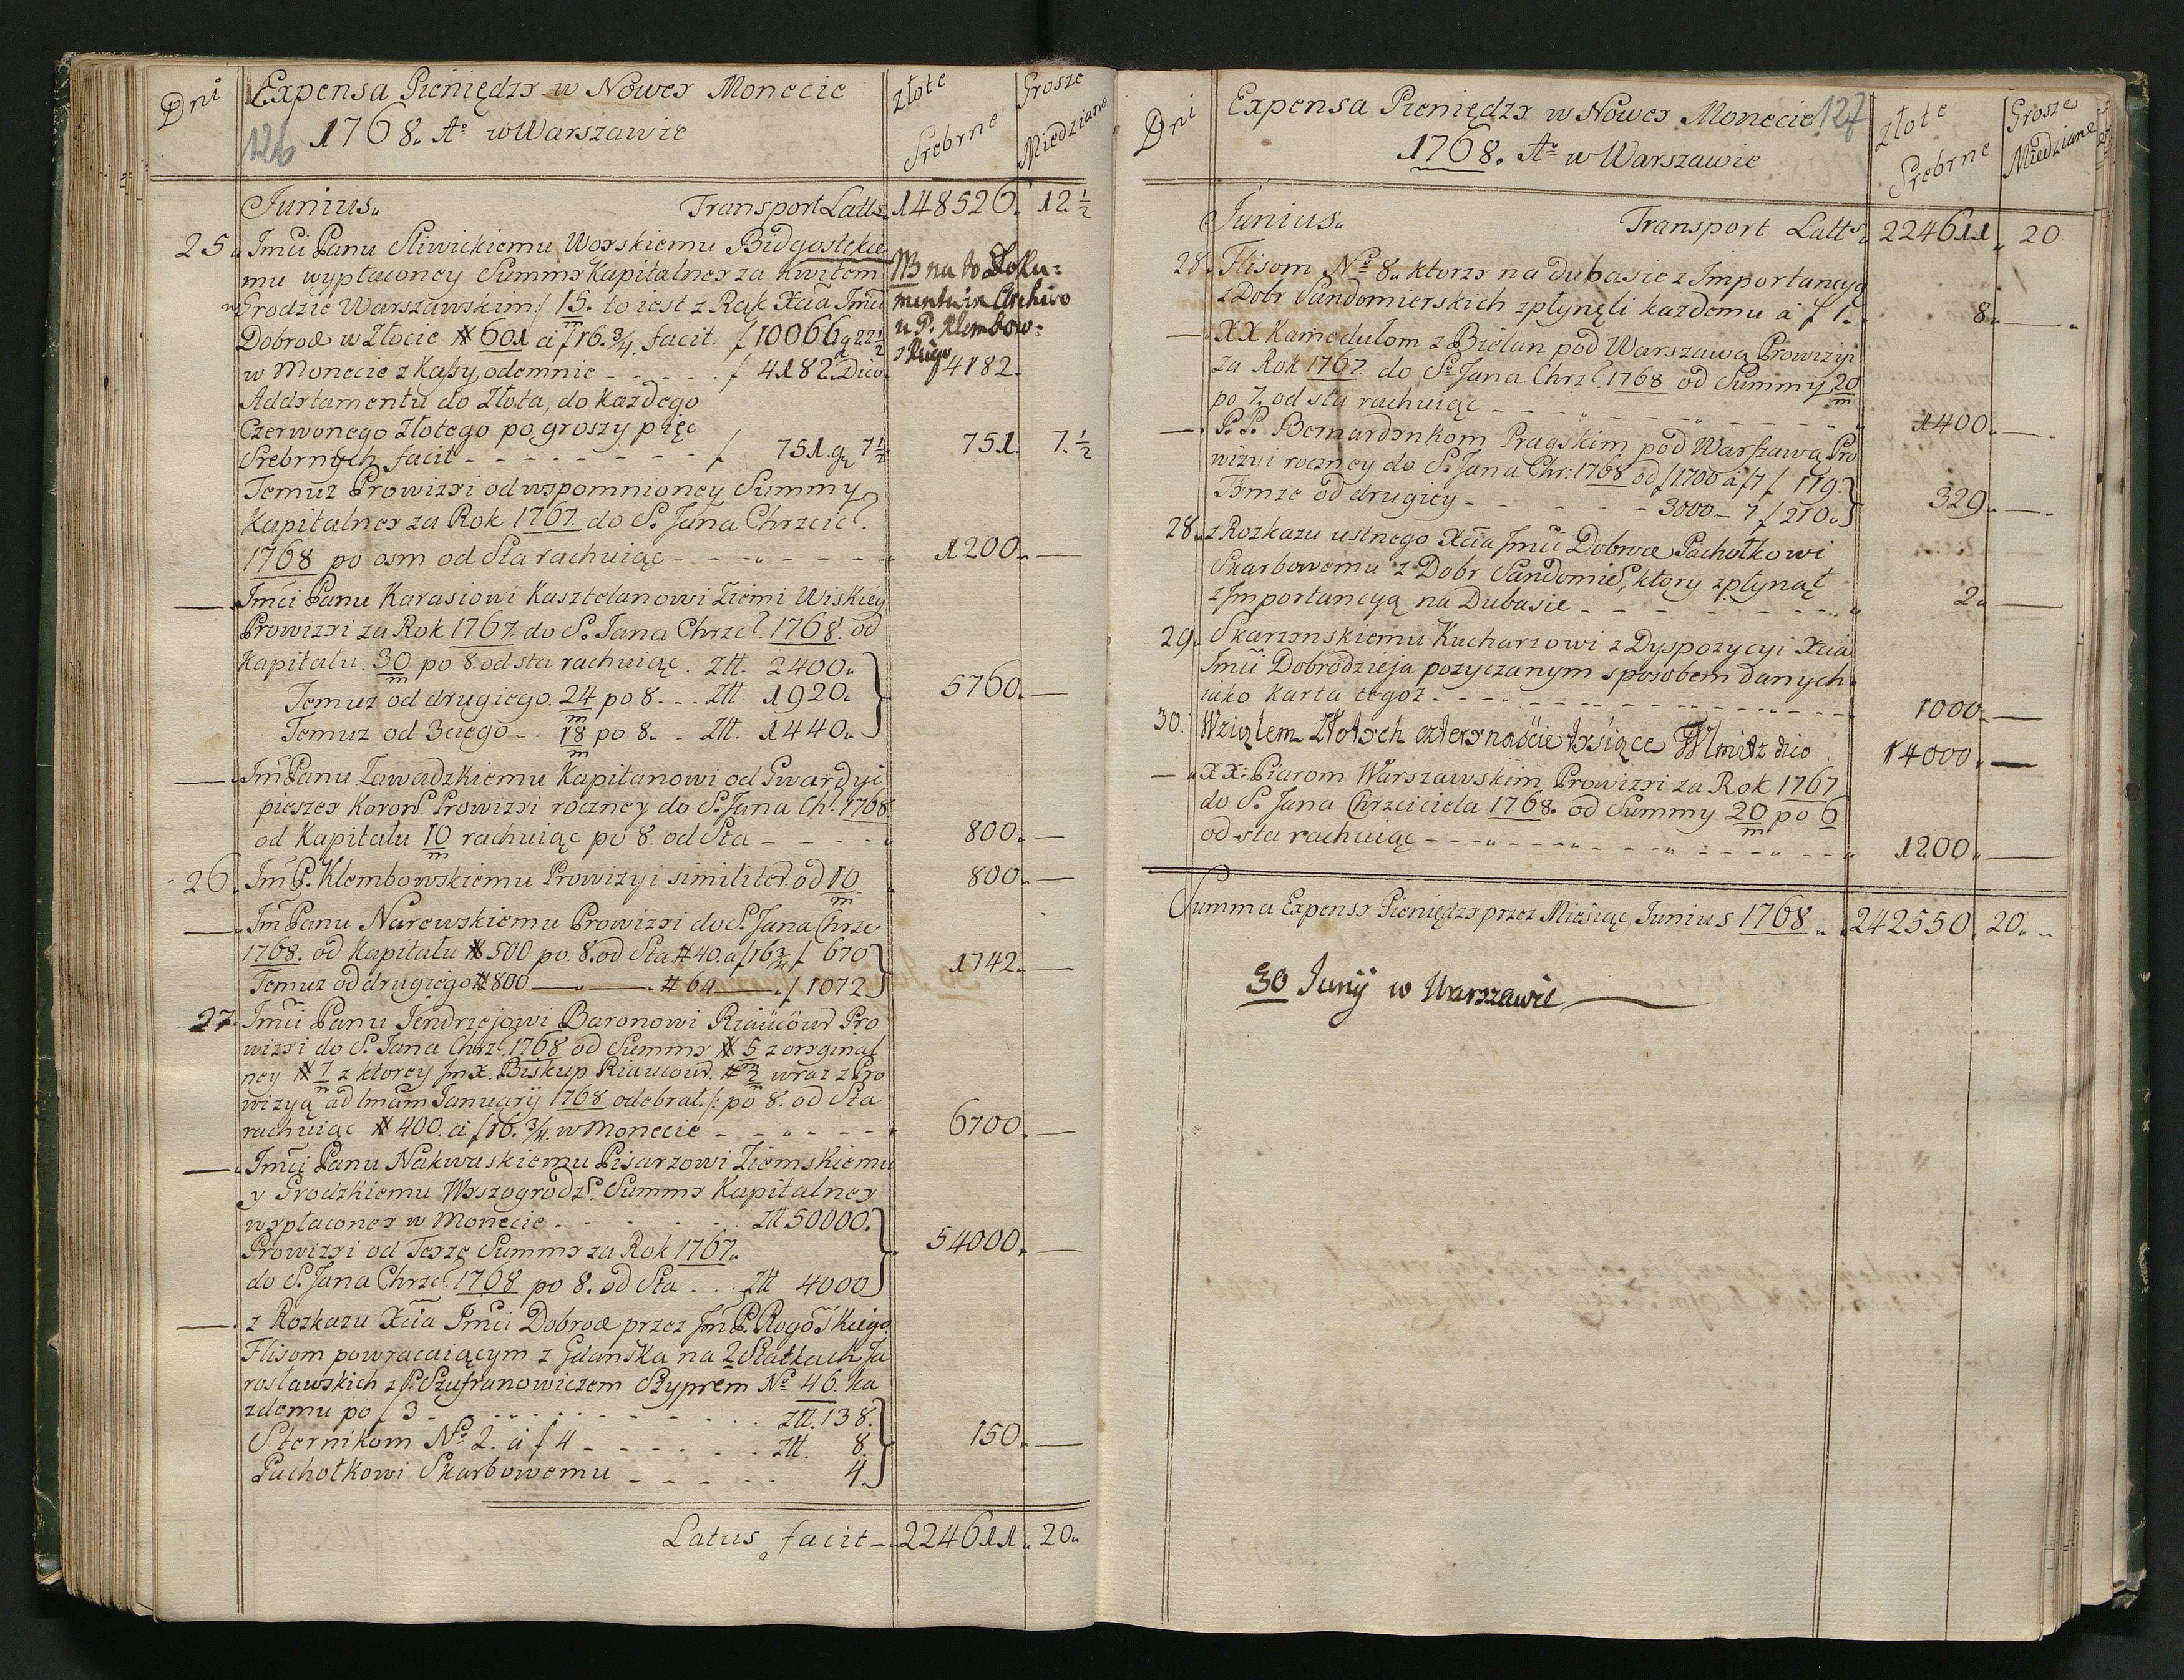 Dni
Expensa Pieniędzy w Nowey Monecie
126 1768. Aº w Warszawie
złote Srebrne
Grosze Miedziane
Junius. Transport Latts. 148526. 12 1/2
25. Jmci Panu Sliwickiemu Woyskiemu Bidgostskie
mu wypłaconey Summy Kapitalney za kwitem
w Grodzie Warszawskim f 15/m to iest z Rąk Xcia Jmci
Dobrod w Złocie # 601 a f 16. 3/4. facit. f 10066 g 22 1/2
NB na to Doku=
mentu in Archivo
u P. Klembow=
skiego
w Monecie z Kassy odemnie - - - - - f 4182. Dico. f 4182.
Addytamentu do Złota, do każdego
Czerwonego Złotego po groszy pięć
Srebrnych facit - - - - - - - - f 751. g 7 1/2 751. 7. 1/2
Temuz Prowizyi od wspomnioney Summy
Kapitalney za Rok 1767. do S. Jana Chrzciel.
1768 po osm od Sta rachuiąc - - - - - - - 1200. —
—. Jmci Panu Karasiowi Kasztelanowi Ziemi Wiskiey
Prowizyi za Rok 1767. do S. Jana Chrzcl. 1768. od
Kapitału. 30/m po 8. od sta rachuiąc. Ztt. 2400.
Temuz od drugiego. 24/m po 8. - - . Ztt 1920. 5760. —
Temuz od 3ciego - - 18/m po 8. - . Ztt. 1440.
—. Jm Panu Zawadzkiemu Kapitanowi od Gwardyi
pieszey Koron. Prowizyi roczney do S. Jana Ch. 1768.
od Kapitału 10/m rachuiąc po 8. od Sta - - - - . 800. —
26. Jm P. Klembowskiemu Prowizyi similiter. od 10/m. 800. —
—. Jm Panu Narewskiemu Prowizyi do S. Jana Chrzc
1768. od Kapitału # 500 po. 8. od Sta # 40. a f 16 3/4 f 670
Temuz od drugiego # 800 —„—. # 64 —„ f 1072 1742. —
27. Jmci Panu Jendrzejowi Baronowi Riaucour Pro
wizyi do S. Jana Chrzl. 1768 od Summy # 5/m z orginal
ney # 7/m z ktorey Jm X. Biskup Riaucour. # 2/m wraz z Pro
wizyą ad 1mam Januarij 1768 odebrał. /: po 8. od Sta
rachuiąc # 400. a f 16. 3/4. w Monecie - - - - - - 6700. —
—. Jmci Panu Nakwaskiemu Pisarzowi Ziemskiemu
y Grodzkiemu Wyszogrodz. Summy Kapitalney
wypłaconey w Monecie - - - - - - - Ztt 50000.
Prowizyi od Teyże Summy za Rok 1767. 54000. —
do S. Jana Chrzcl. 1768 po 8. od Sta . . Ztt 4000
—. z Rozkazu Xcia Jmci Dobrod przez Jm P. Rogoyskiego
Flisom powracaiącym z Gdańska na 2 Statkach Ja
rosławskich z P. Szafranowiczem Szyprem Nº 46. ka
zdemu po f 3 - - - - - - - - - - - Ztt. 138.
Sternikom Nº 2. a f 4 - - - - - - Ztt. 8. 150. —
Pachołkowi Skarbowemu - - - - - 4.
Latus facit - 224611. 20.
Dni
Expensa Pieniędzy w Nowey Monecie 127
1768. Aº w Warszawie
złote Srebrne
Grosze Miedziane
Junius. Transport Latts. 224611. 20
28. Flisom Nº 8. ktorzy na dubasie z Importancyą
z Dobr Sandomierskich zpłynęli kazdemu a f 1. 8. —
—. XX Kamedułom z Bielan pod Warszawą Prowizyi
za Rok 1767. do Sº Jana Chrzl. 1768 od Summy 20/m
po 7. od sta rachuiąc - - - - - - - - 1400. —
—. P.P. Bernardynkom Pragskim pod Warszawą Pro
wizyi roczney do S. Jana Chr: 1768 od f 1700 a f 7 f 119.
Tymże od drugiey - - - - - - 3000 - 7. f 210. 329. —
28. z Rozkazu ustnego Xcia Jmci Dobrod Pachołkowi
Skarbowemu z Dobr Sandomie, ktory zpłynął
z Importancyą na Dubasie - - - - - - - - 2. —
29. Skarzynskiemu Kucharzowi z Dyspozycyi Xcia
Jmci Dobrodzieja pozyczanym sposobem danych
iako Karta tegoz - - - - - - - - - - 1000. —
30. Wziąlem Złotych czternaście tysiące dico 14000. —
—. XX. Piarom Warszawskim Prowizyi za Rok 1767
do S. Jana Chrzciciela 1768. od Summy 20/m po 6
od sta rachuiąc - - - - - - - - - 1200. —
Summa Expensy Pieniędzy przez Miesiąc Junius 1768. 242550. 20.
30 Junij w Warszawie —